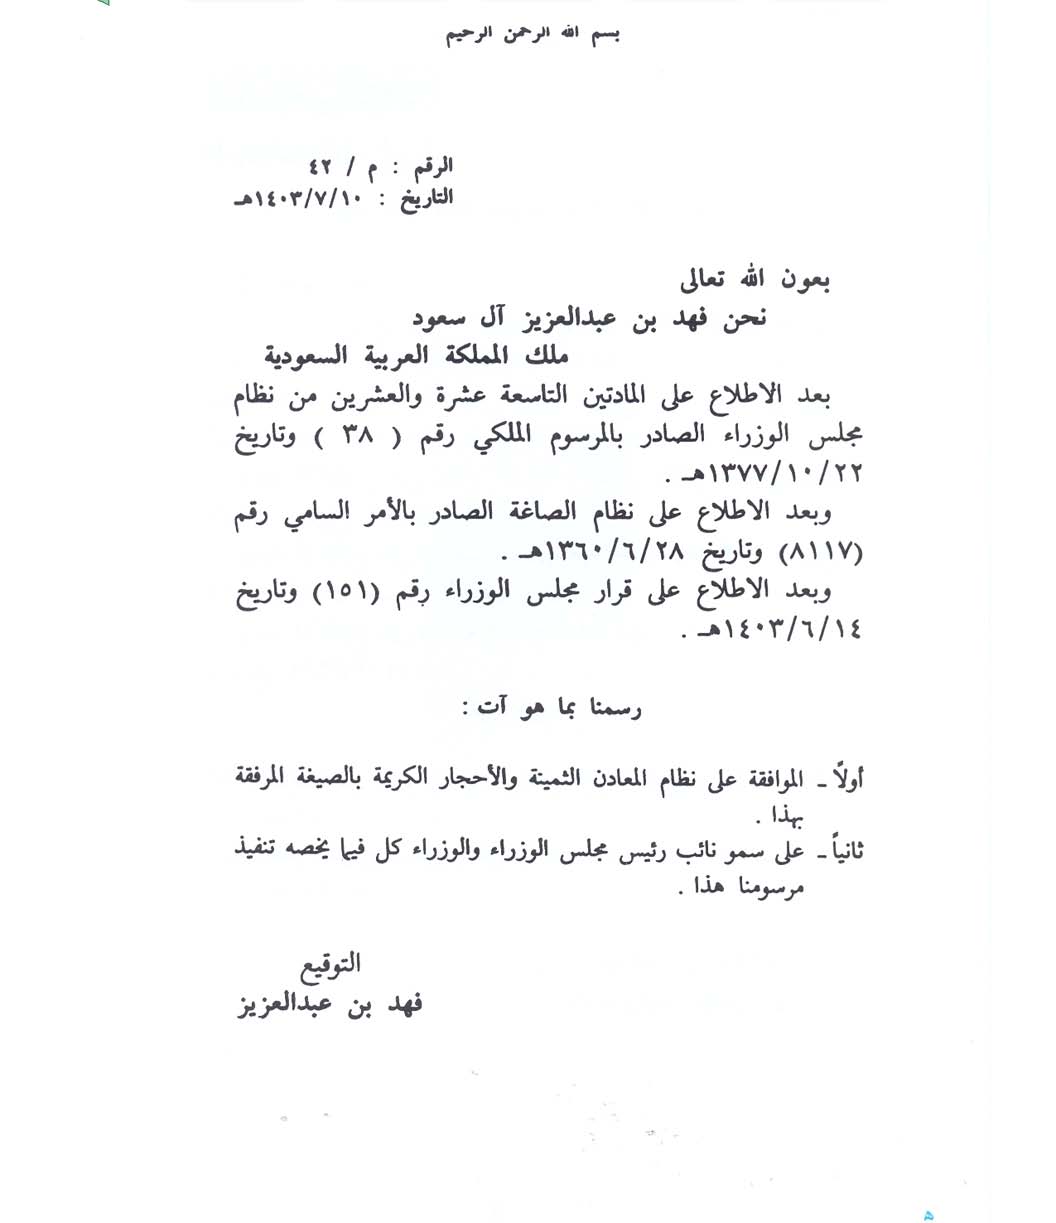 بسم الله الرحمن الرحيم
الرقم : م / ٤٢
التاريخ : ١٤٠٣/٧/١٠هـ
بعون الله تعالى
نحن فهد بن عبدالعزيز آل سعود
ملك المملكة العربية السعودية
بعد الاطلاع على المادتين التاسعة عشرة والعشرين من نظام
مجلس الوزراء الصادر بالمرسوم الملكي رقم ( ٣٨ ) وتاريخ
١٣٧٧/١٠/٢٢هـ .
وبعد الاطلاع على نظام الصاغة الصادر بالأمر السامي رقم
(٨١١٧) وتاريخ ١٣٦٠/٦/٢٨هـ .
وبعد الاطلاع على قرار مجلس الوزراء رقم (١٥١) وتاريخ
١٤٠٣/٦/١٤هـ .
رسمنا بما هو آت :
أولاً ـ الموافقة على نظام المعادن الثمينة والأحجار الكريمة بالصيغة المرفقة
بهذا .
ثانياً ـ على سمو نائب رئيس مجلس الوزراء والوزراء كل فيما يخصه تنفيذ
مرسومنا هذا .
التوقيع
فهد بن عبدالعزيز